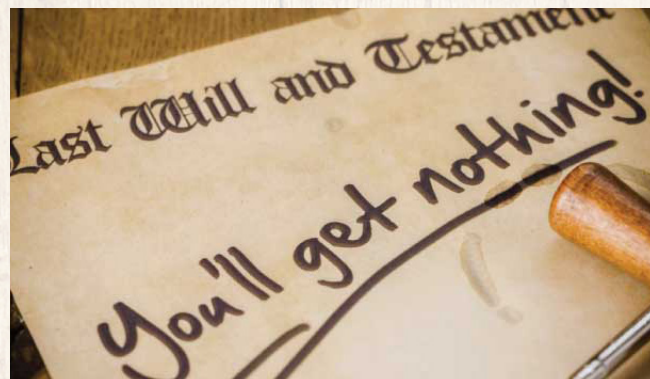 Last Will and Testament
You'll get nothing!